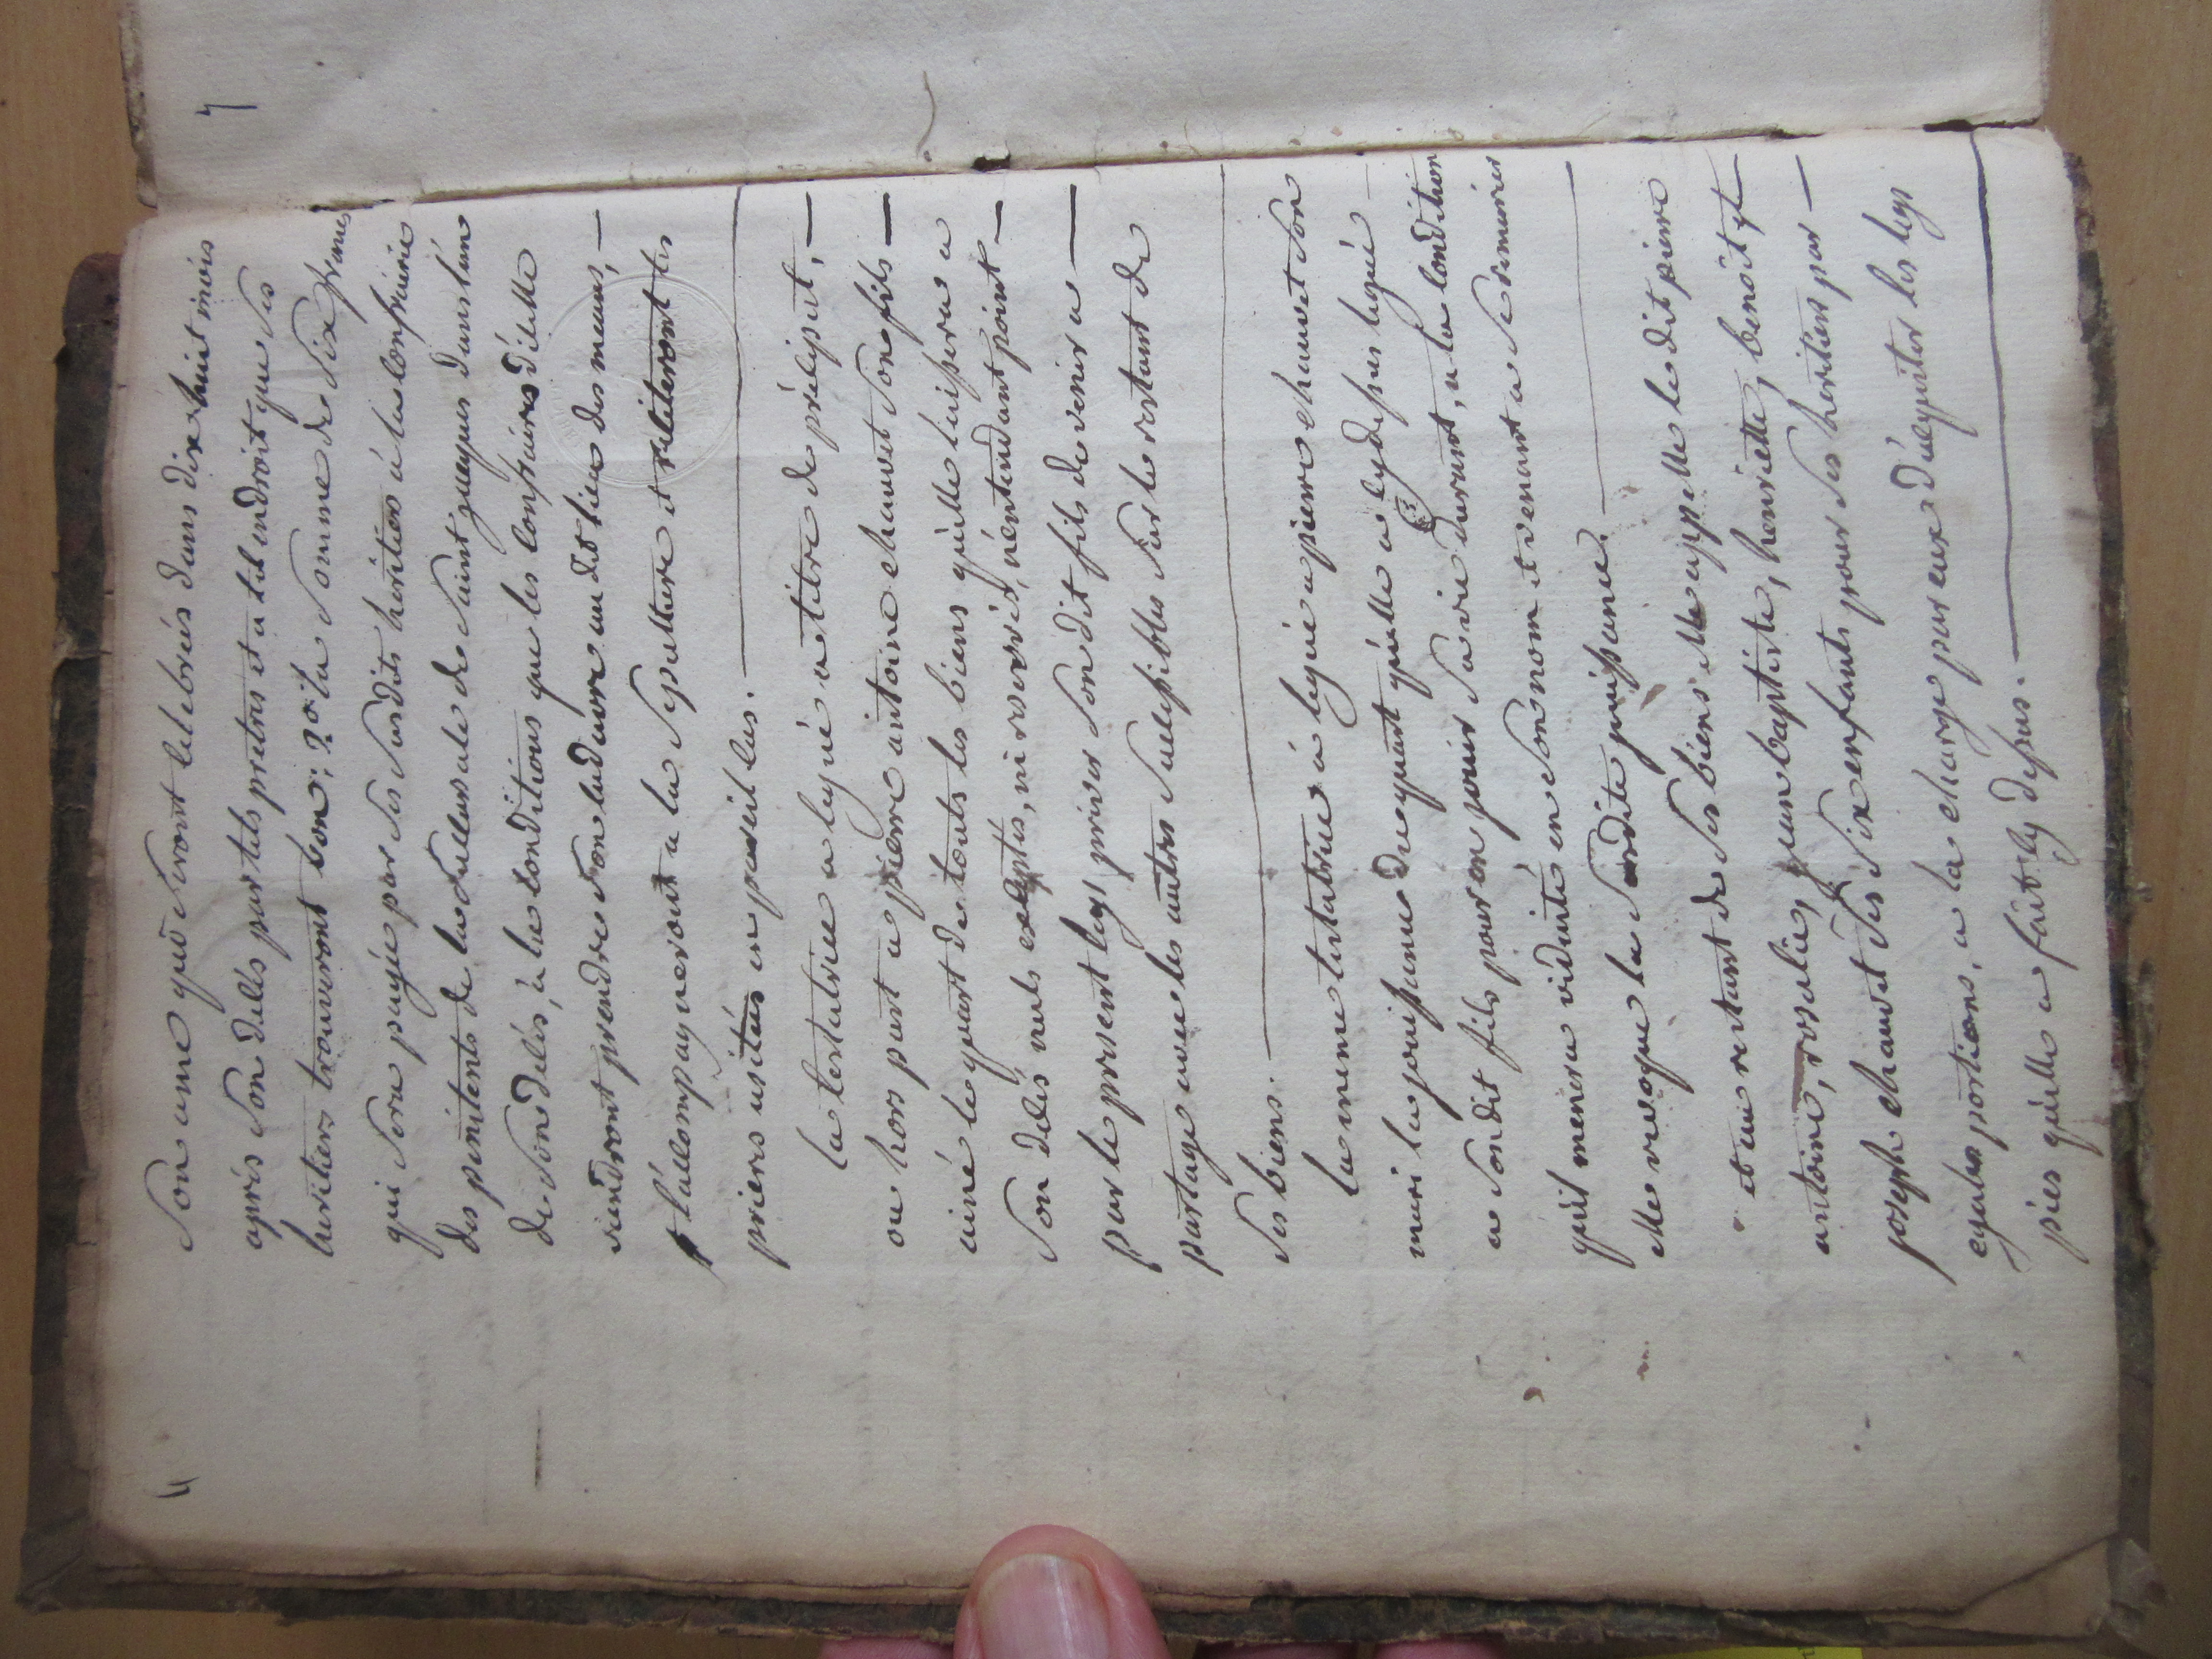 4
Son ame qui Seront celebrées dans dix huit mois
après Son décès par tels pretres et a tel endroit que Ses
heritiers trouveront bon; 2° la Somme de Six francs
qui Sera payée par Ses Susdits heritiers à la confrairie
des penitents de la Succursale de Saint jacques dans l'an
de Son décès, à la conditions que les confraires d'icelle
viendront prendre Son cadavre au dit lieu des meaux, —
l'accompagneront a la Sepulture et reciteront les
prieres usitées en pareil cas.
la testatrice a legué a titre de préciput, —
ou hors part a pierre antoine chauvet Son fils —
ainé le quart de touts les biens qu'elle laissera a
Son décès nuls exceptés, ni reservés, n'entendant point —
par le present legs priver Son dit fils de venir a —
partage avec les autres Successibles Sur le restant de
Ses biens.
la meme testatrice a legué a pierre chauvet Son
mari la jouissance du quart qu'elle a cy dessus legué
a Son dit fils pour en jouir Sa vie durant, a la condition
qu'il menera viduité en Son nom et venant a Se remarier
elle revoque la Susdite jouissance.
et au restant de Ses biens elle appelle le dit pierre
antoine, rosalie, jean baptiste, henriette, benoit et
joseph chauvet Ses Six enfants pour Ses heritiers par —
egales portions, a la charge par eux d'acquitter les legs
pies qu'elle a fait cy dessus.